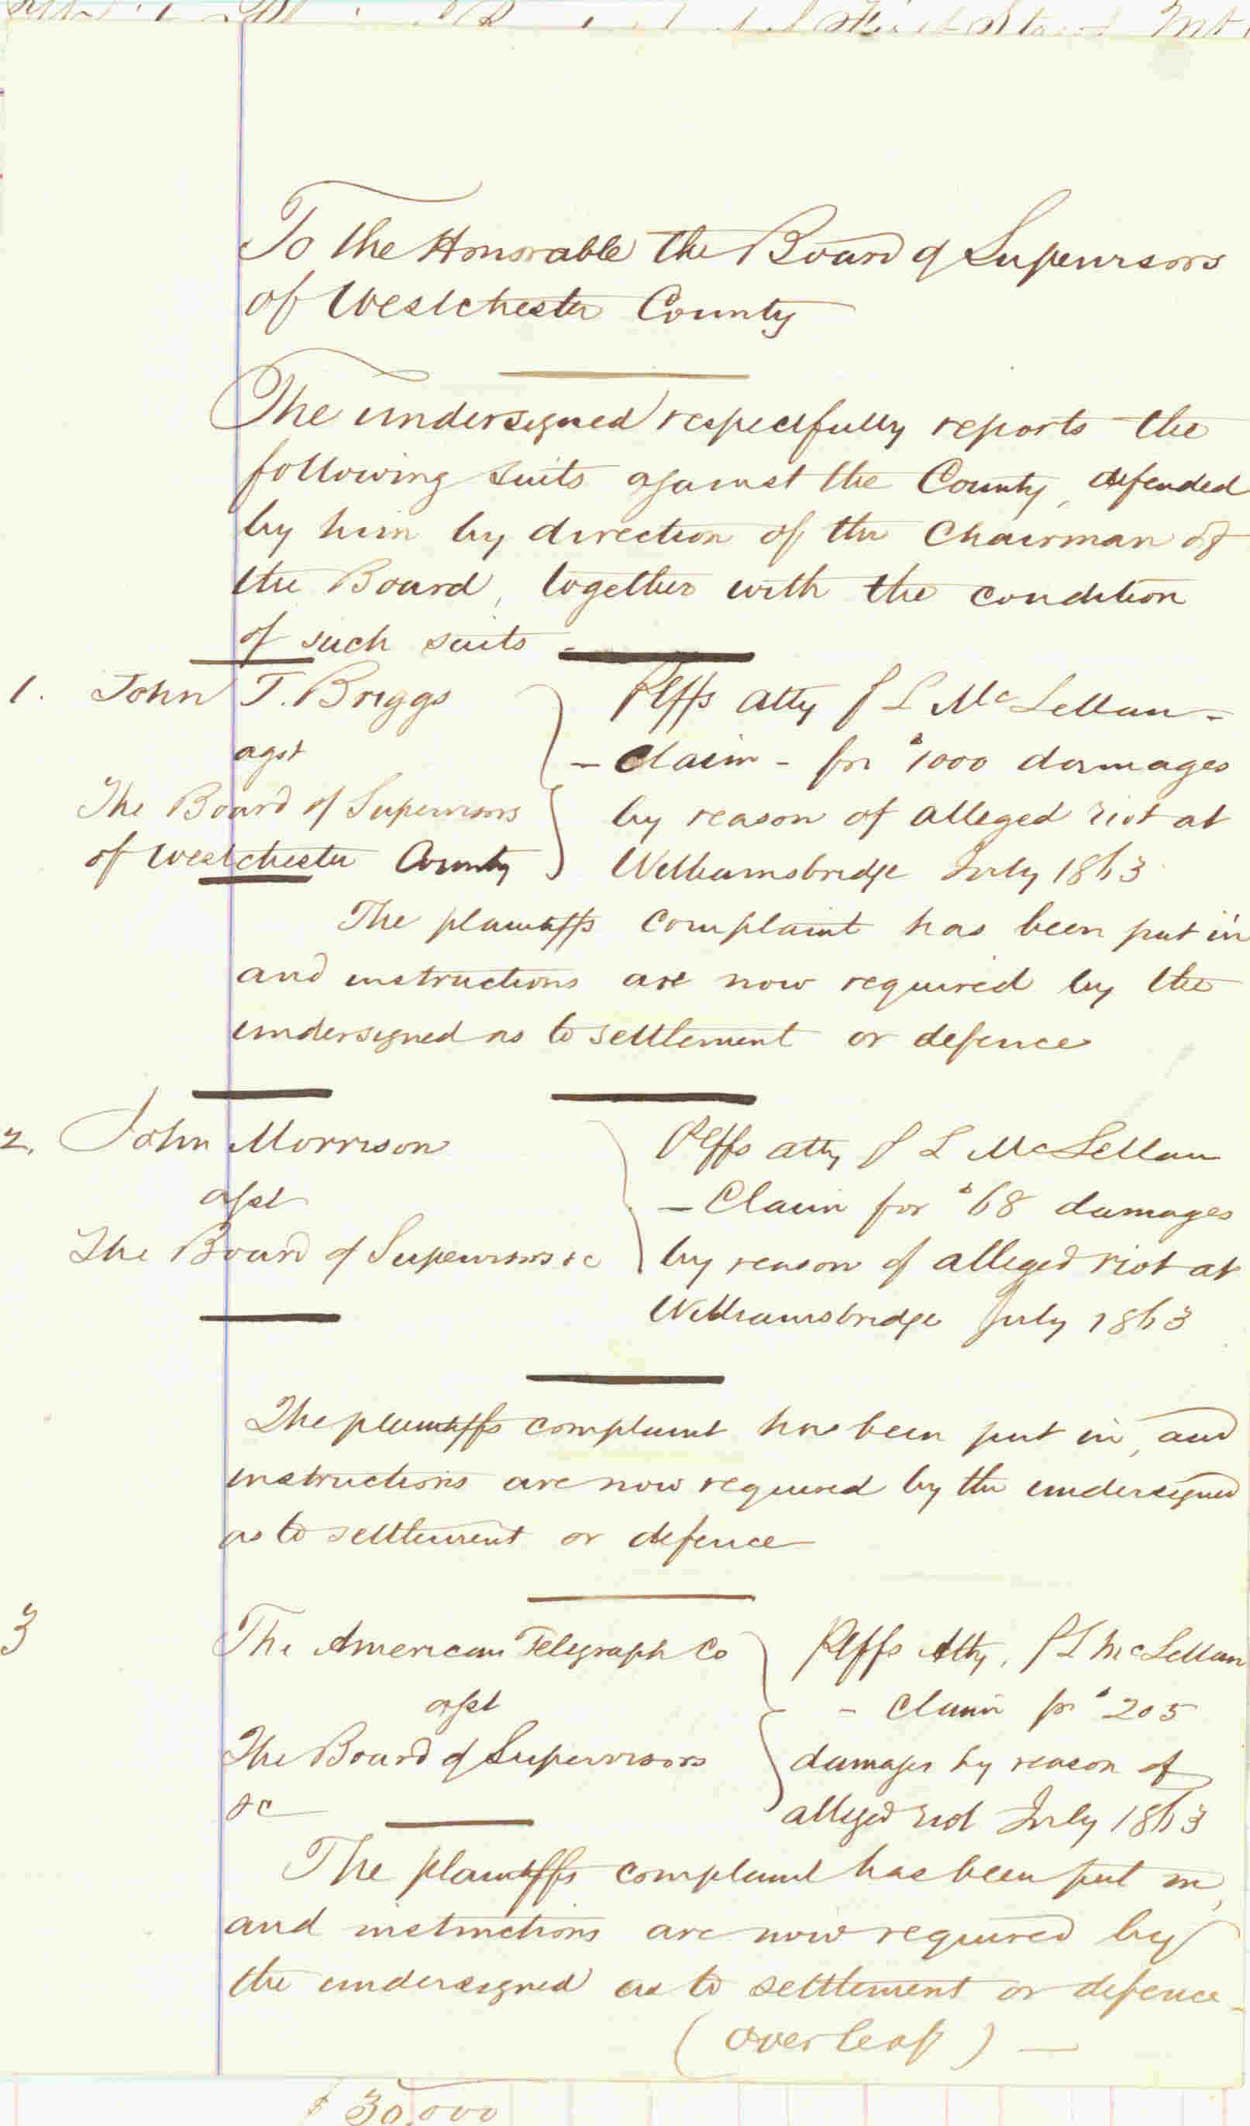 To the Honorable the Board of Supervisors
of Westchester County
The undersigned respectfully reports the
following suits against the County, defended
by him by direction of the Chairman of
the Board, together with the condition
of such suits -
1. John T. Briggs
agst
The Board of Supervisors
of Westchester County
Plffs atty P L McLellan -
- Claim - for $1000 damages
by reason of alleged riot at
Williamsbridge July 1863
The plaintiffs complaint has been put in
and instructions are now required by the
undersigned as to settlement or defence
2. John Morrison
agst
The Board of Supervisors &c
Plffs atty P L McLellan
- Claim for $68 damages
by reason of alleged riot at
Williamsbridge July 1863
The plaintiffs complaint has been put in, and
instructions are now required by the undersigned
as to settlement or defence
3 The American Telegraph Co
agst
The Board of Supervisors
&c
Plffs Atty, P L McLellan
- Claim for $205
damages by reason of
alleged riot July 1863
The plaintiffs complaint has been put in,
and instructions are now required by
the undersigned as to settlement or defence -
(over leaf) -
$30,000